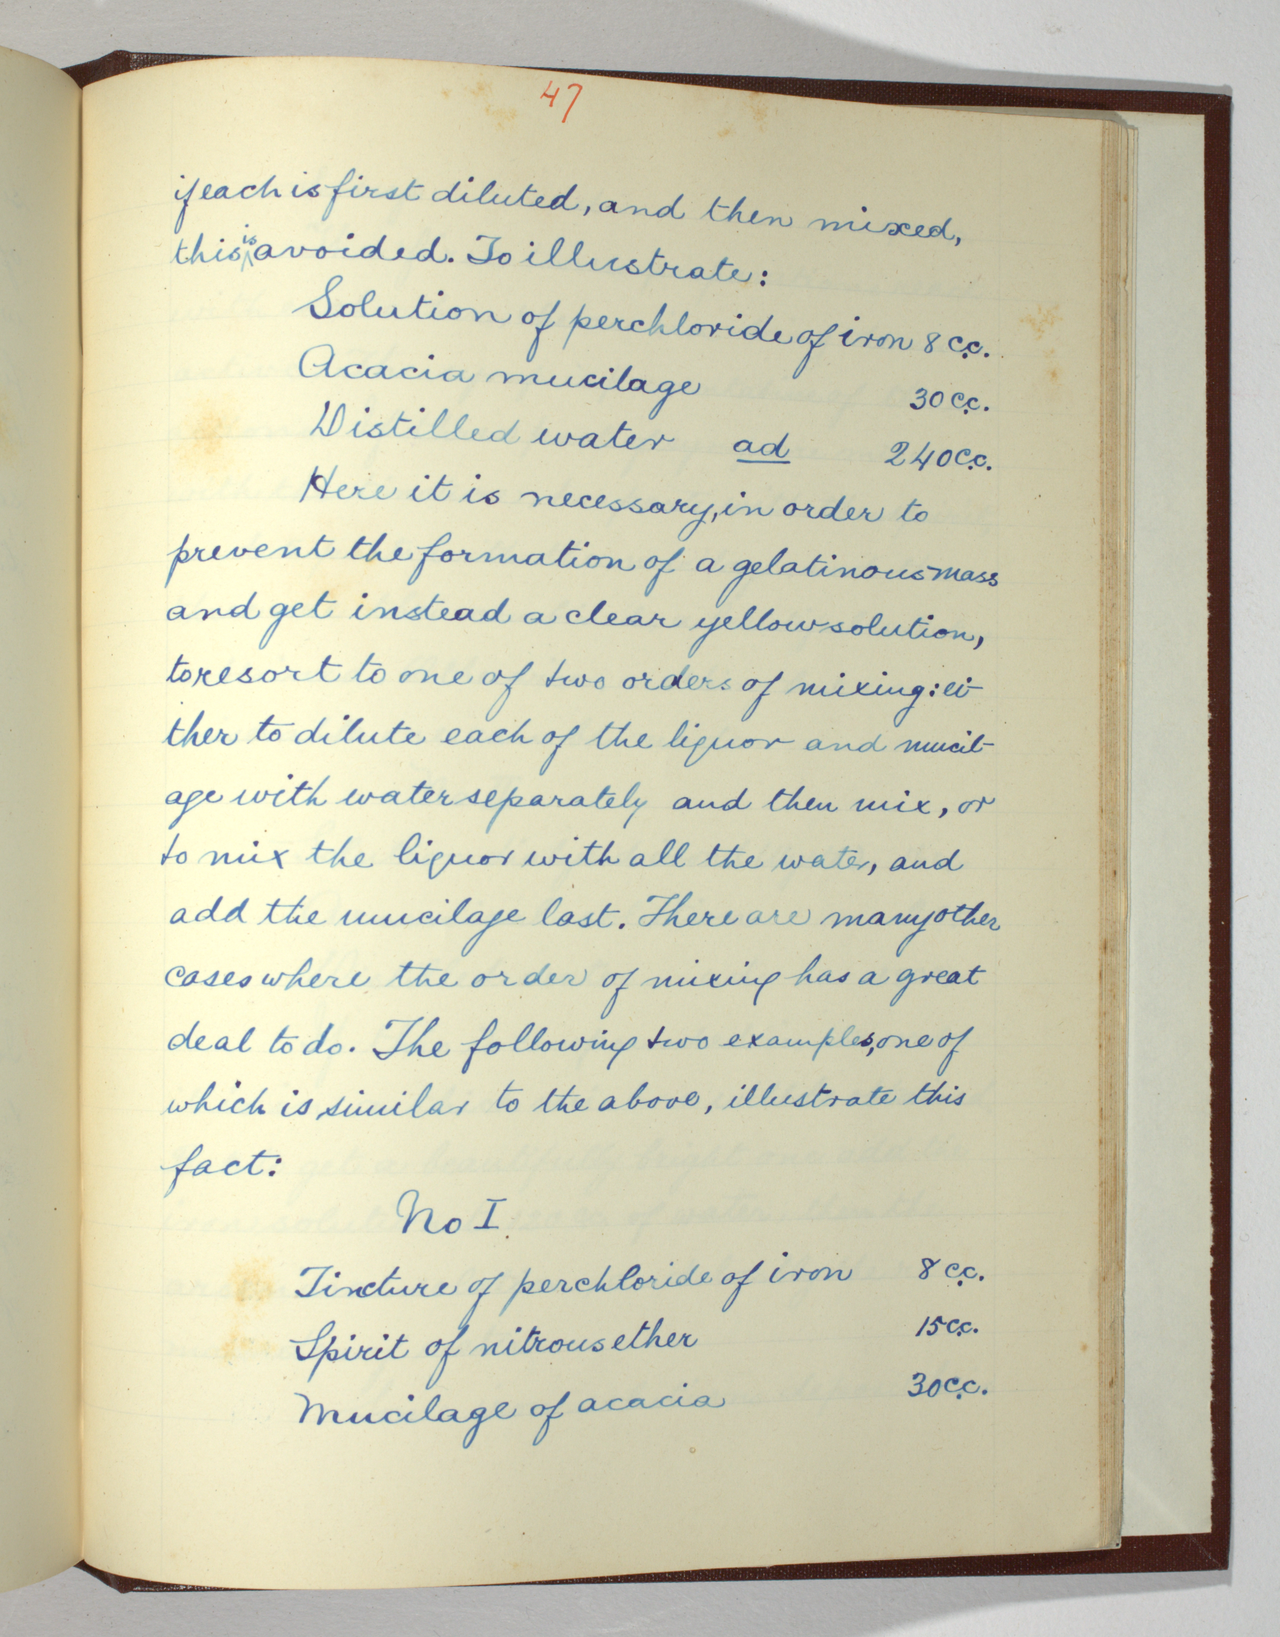 47
if each is first diluted, and then mixed,
this is avoided. To illustrate:
Solution of perchloride of iron 8 c.c.
Acacia mucilage 30 c.c.
Distilled water ad 240 c.c.
Here it is necessary, in order to
prevent the formation of a gelatinous mass
and get instead a clear yellow solution,
to resort to one of two orders of mixing: ei-
ther to dilute each of the liquor and mucil-
age with water separately and then mix, or
to mix the liquor with all the water, and
add the mucilage last. There are many other
cases where the order of mixing has a great
deal to do. The following two examples, one of
which is similar to the above, illustrate this
fact:
No I
Tincture of perchloride of iron 8 c.c.
Spirit of nitrous ether 15 c.c.
Mucilage of acacia 30 c.c.